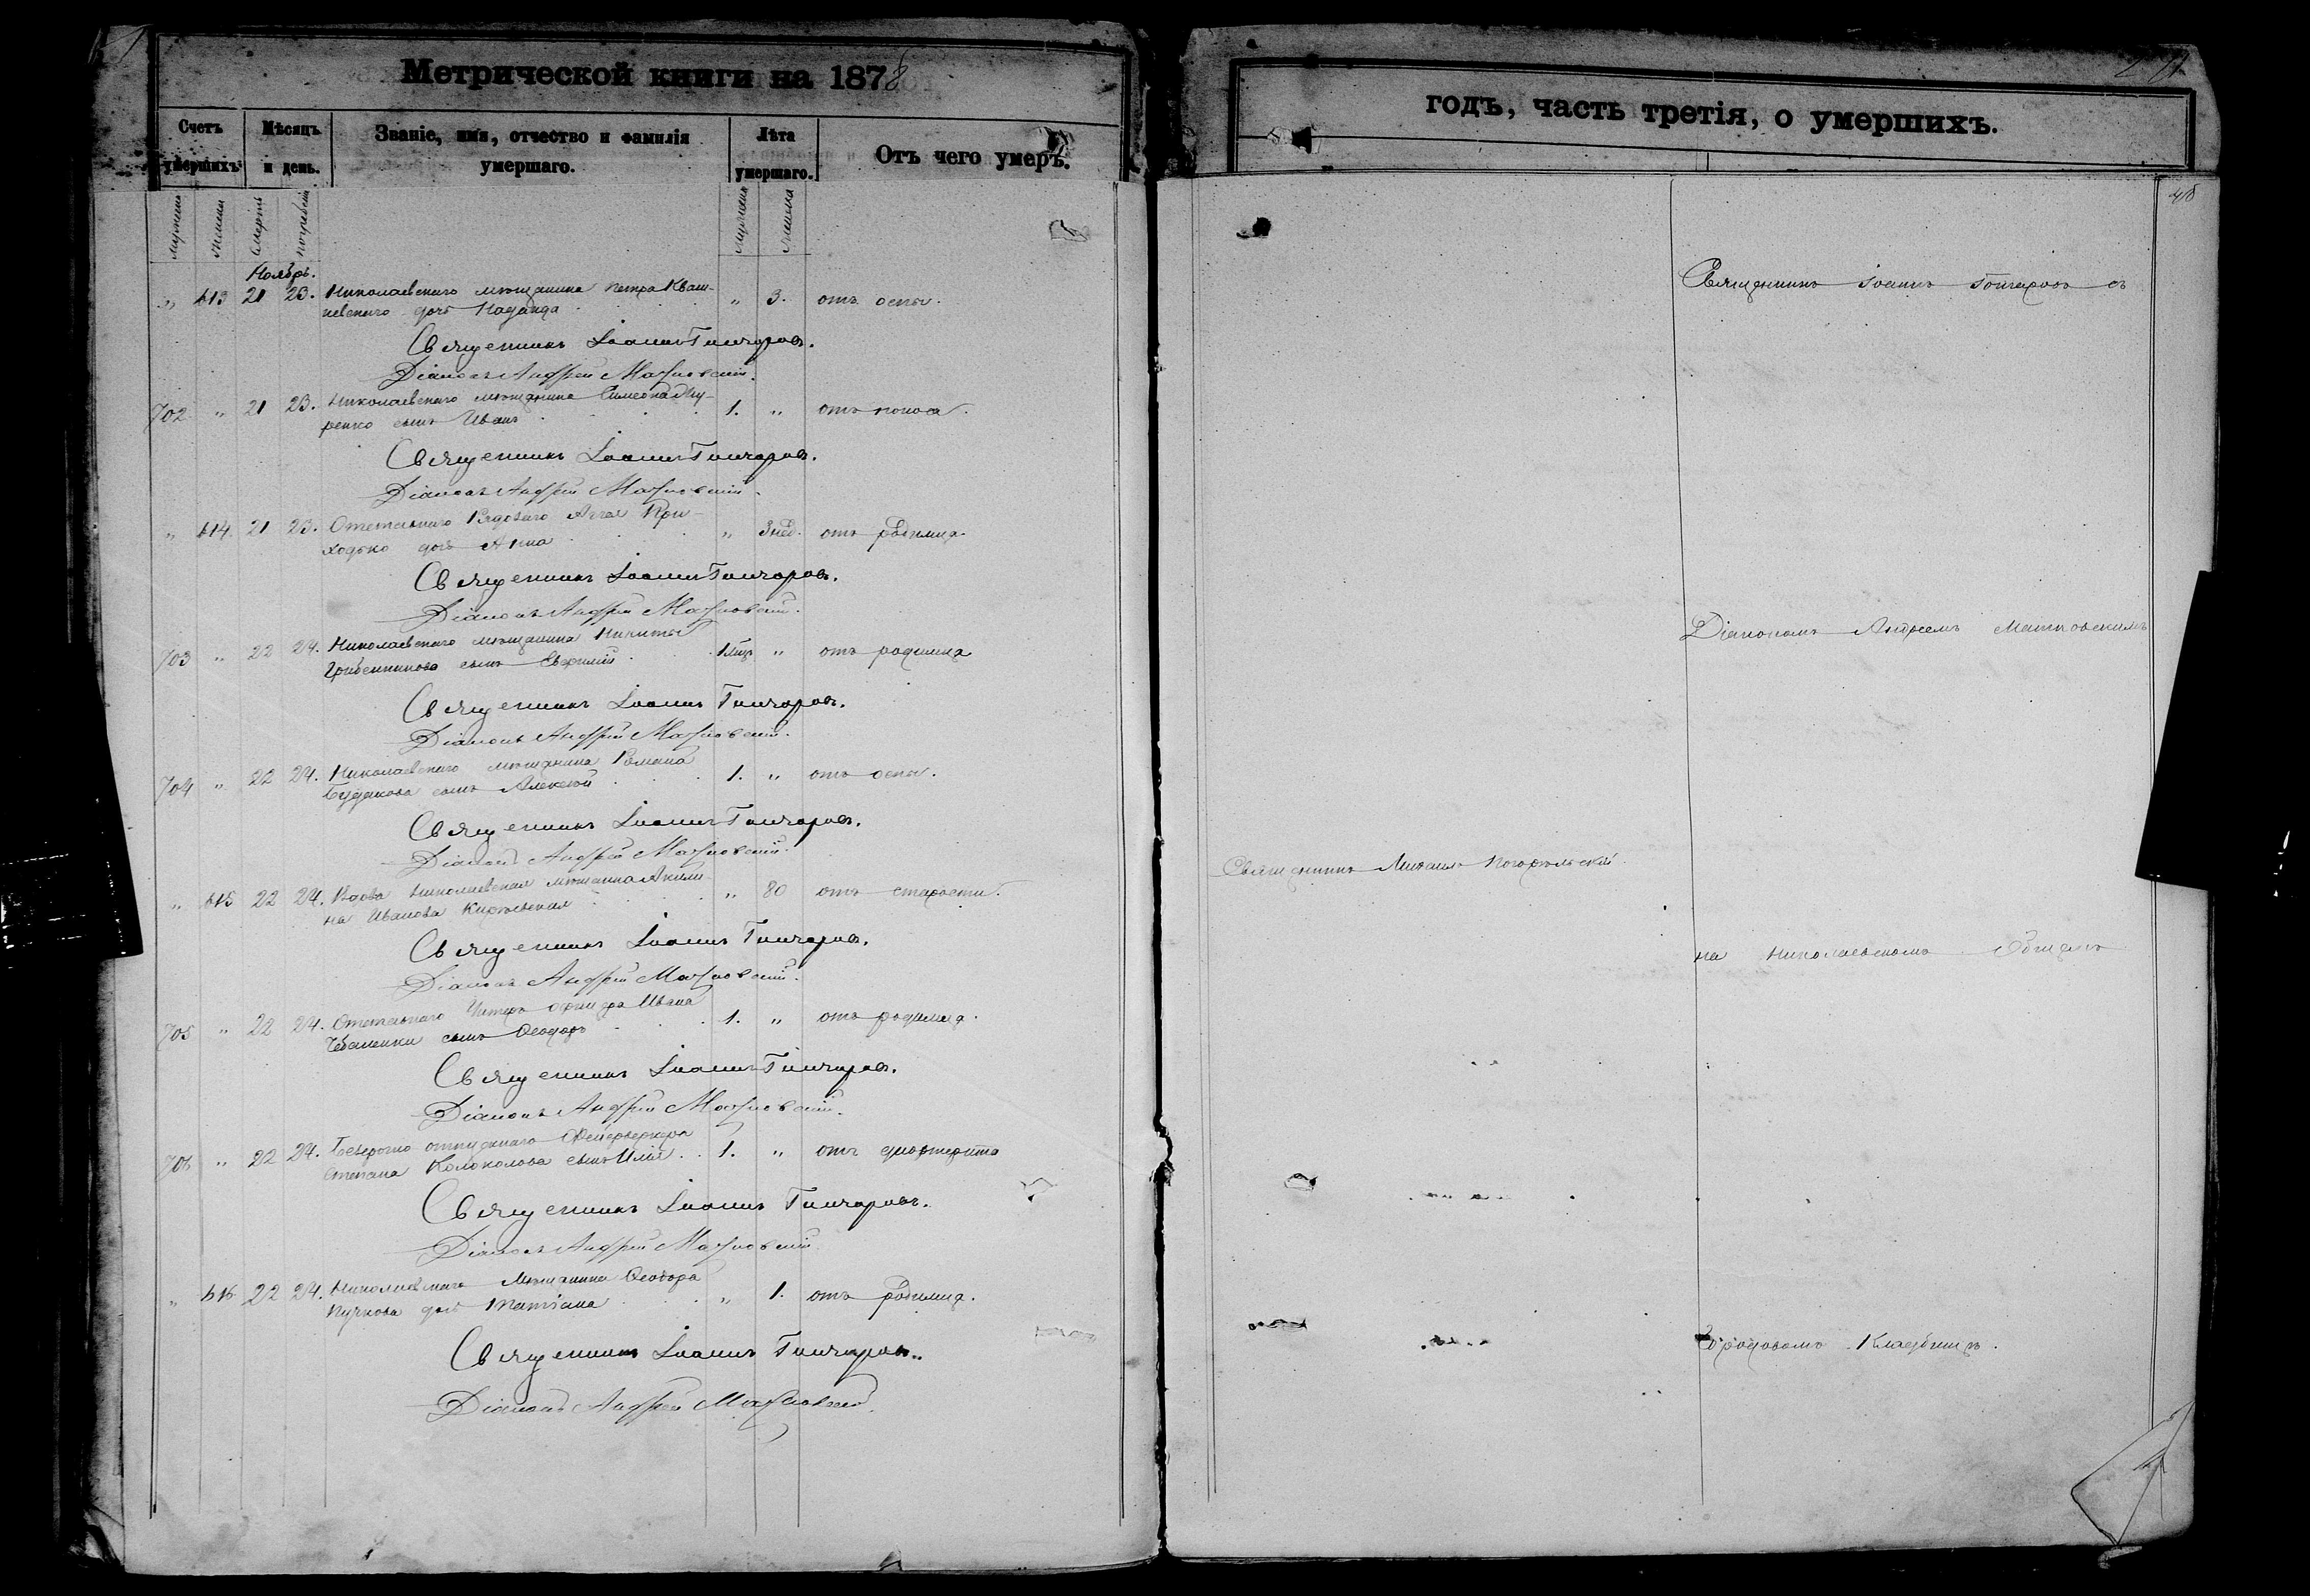 Метрической книги на 1878
Счетъ умершихъ
Мѣсяцъ и день.
Званіе, имя, отчество и фамилія умершаго.
Лѣта умершаго.
Отъ чего умеръ.
Смерти
Ноябрь.
" 613 21 23. Николаевскаго мѣщанина Петра Кваш-
невскаго дочь Надежда " 3. отъ оспы.
Священникъ Іоаннъ Гончаровъ.
Діаконъ Андрей Матковскій.
702 " 21 23. Николаевскаго мѣщанина Симеона
ренко сынъ Иванъ 1. " отъ поноса.
Священникъ Іоаннъ Гончаровъ.
Діаконъ Андрей Матковскій.
" 614 21 23. Отставнаго Рядоваго При-
ходько дочь Анна " 3 нед. отъ родимца.
Священникъ Іоаннъ Гончаровъ.
Діаконъ Андрей Матковскій.
703 " 22 24. Николаевскаго мѣщанина Никиты
Гребенникова сынъ Евфимій " отъ родимца
Священникъ Іоаннъ Гончаровъ.
Діаконъ Андрей Матковскій.
704 " 22 24. Николаевскаго мѣщанина Романа
Будакова сынъ Алексѣй 1. " отъ оспы.
Священникъ Іоаннъ Гончаровъ.
Діаконъ Андрей Матковскій.
" 615 22 24. Вдова Николаевская мѣщанка Акили-
на Иванова " 80 отъ старости.
Священникъ Іоаннъ Гончаровъ.
Діаконъ Андрей Матковскій.
705 " 22 24. Отставнаго Унтеръ офицера Ивана
Чебаненки сынъ Ѳеодоръ 1. " отъ родимца.
Священникъ Іоаннъ Гончаровъ.
Діаконъ Андрей Матковскій.
706 " 22 24. отпускнаго Фейерверкера
Степана Колоколова сынъ Илія 1. " отъ дифтерита
Священникъ Іоаннъ Гончаровъ.
Діаконъ Андрей Матковскій.
" 616 22 24. Николаевскаго Мѣщанина Ѳеодора
Пучкова дочь Татіана " 1. отъ родимца.
Священникъ Іоаннъ Гончаровъ.
Діаконъ Андрей Матковскій.
годъ, часть третія, о умершихъ.
Священникъ Іоаннъ Гончаровъ съ
Діакономъ Андреемъ Матковскимъ
Священникъ Михаилъ Погорѣльскій
на Николаевскомъ Общемъ
Городовомъ Кладбищѣ.